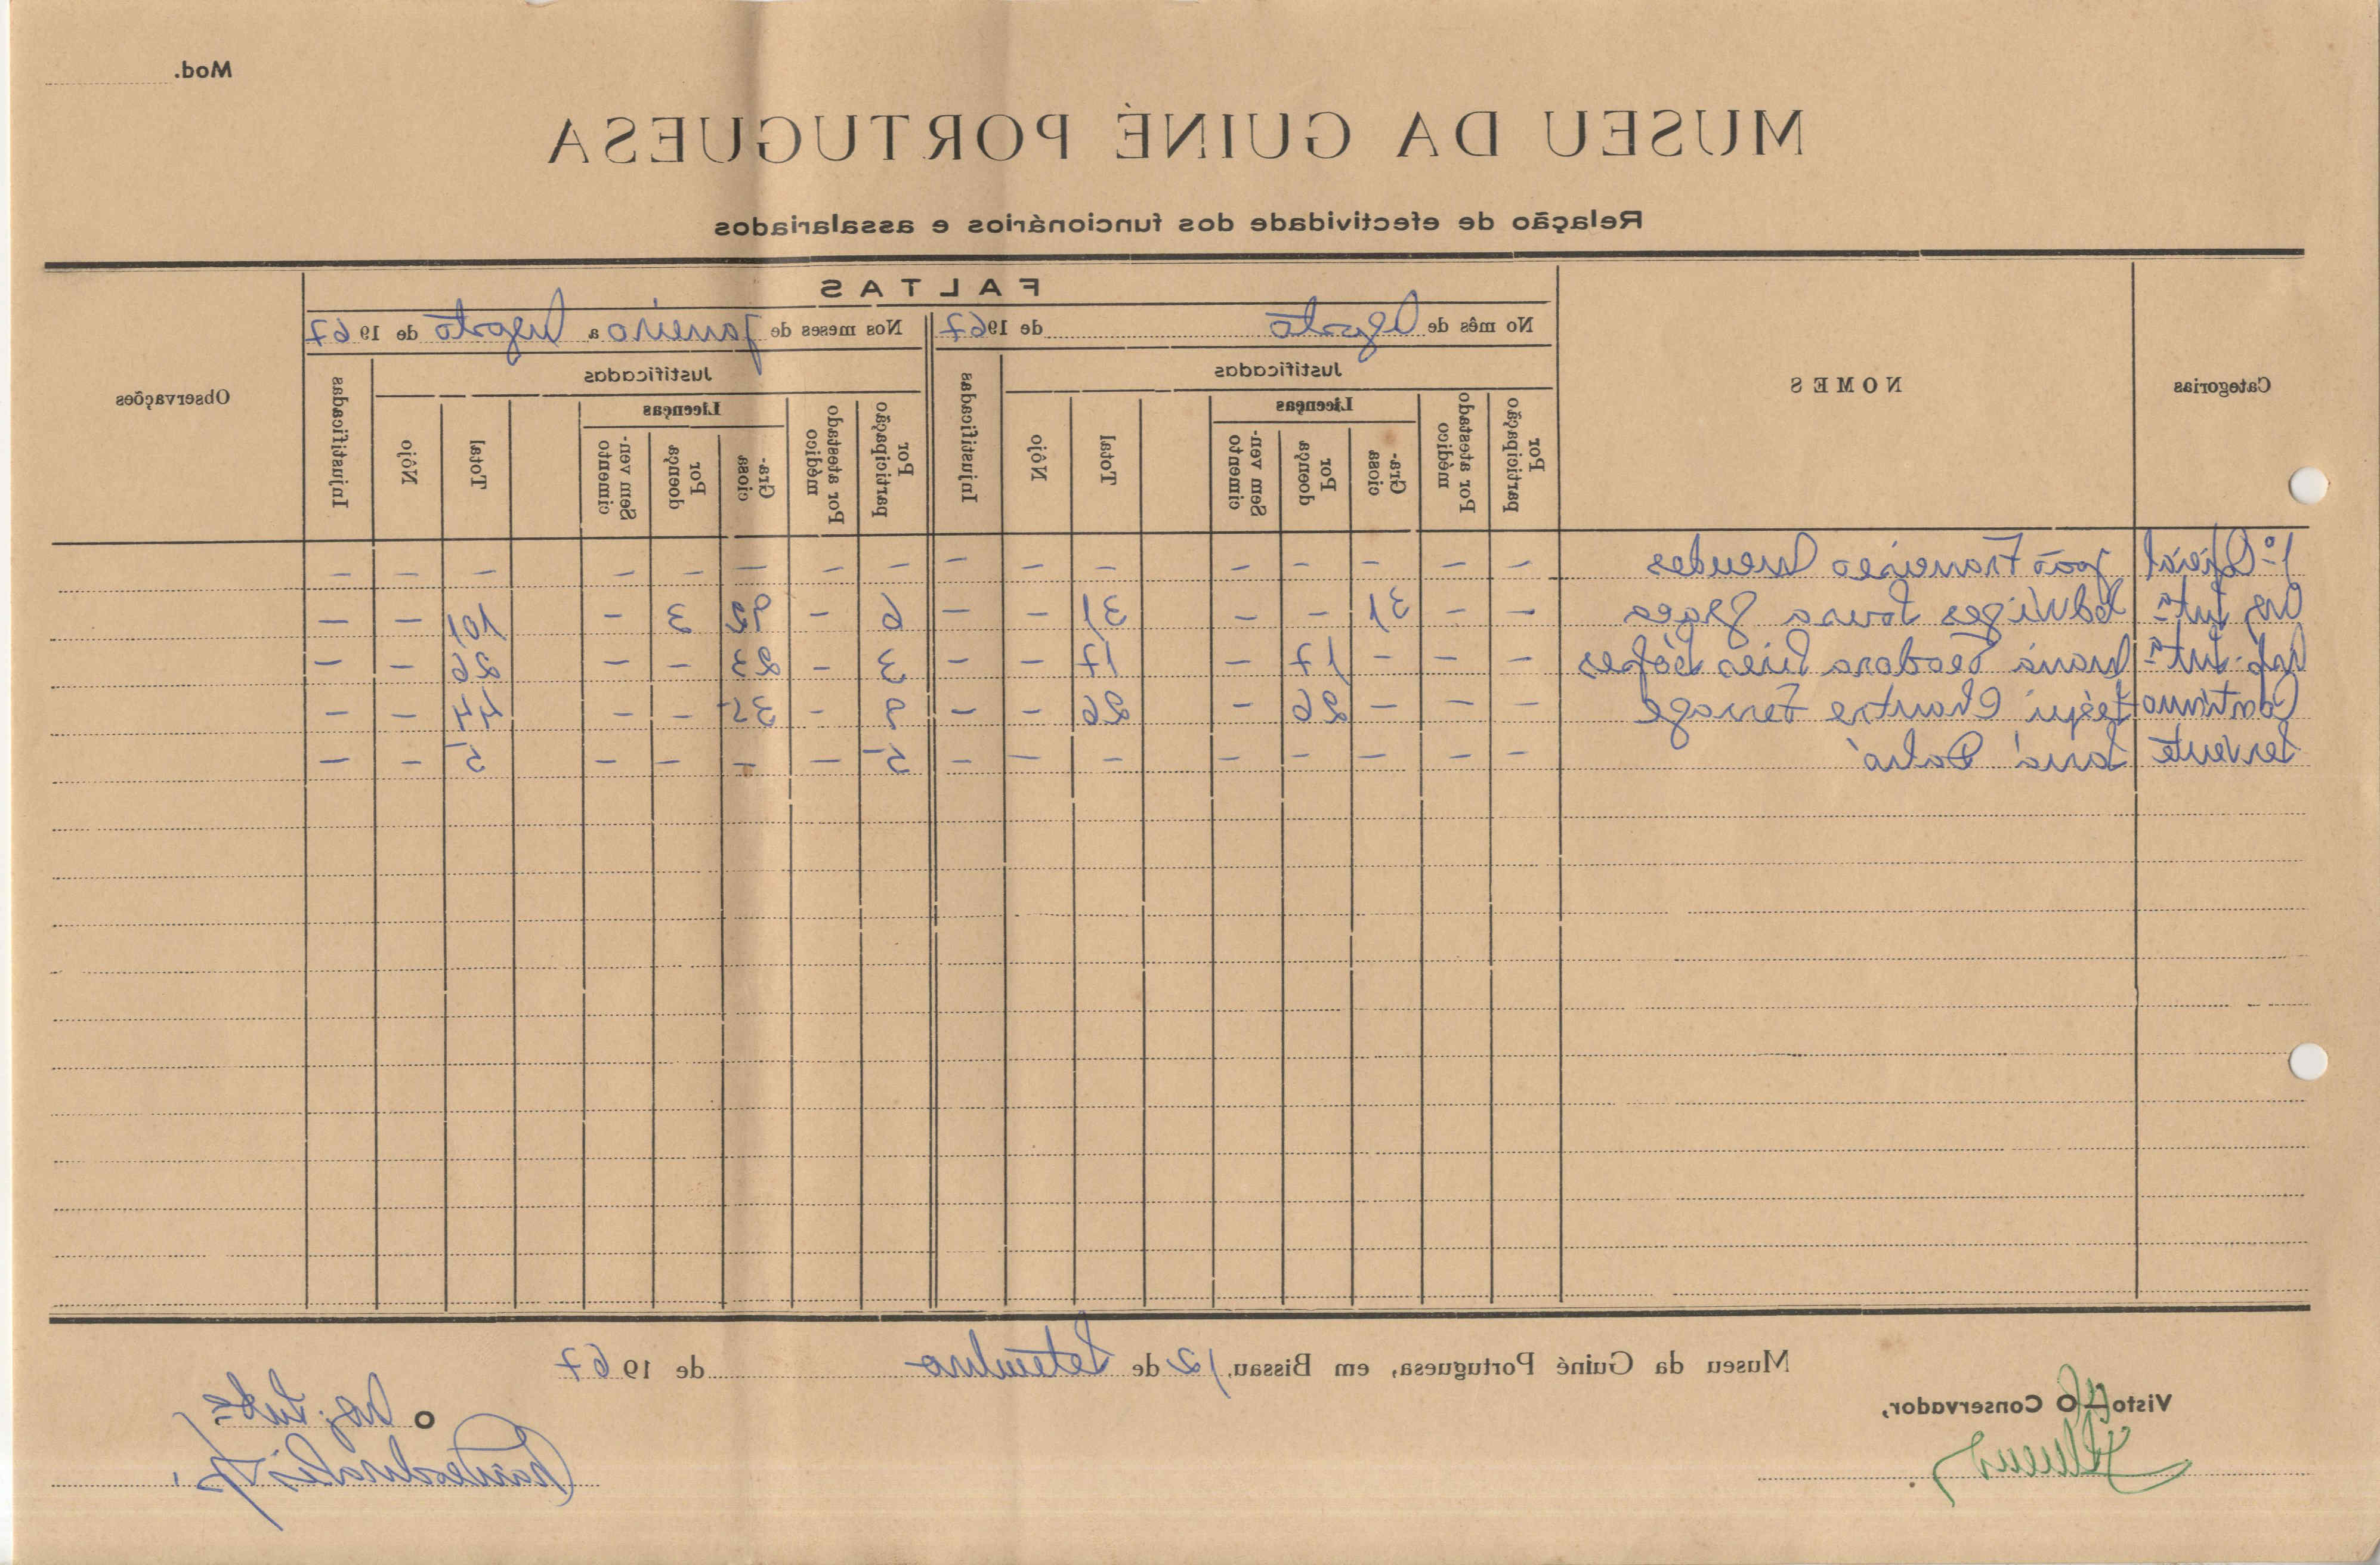 Mod.
MUSEU DA GUINÉ PORTUGUESA
Relação de efectividade dos funcionários e assalariados
Categorias
NOMES
FALTAS
No mês de Agosto de 1967
Nos meses de Janeiro a Agosto de 1967
Observações
Justificadas
Injustificadas
Justificadas
Injustificadas
Por participação
Por atestado médico
Licenças
Graciosa
Por doença
Sem vencimento
Total
Nôjo
Por participação
Por atestado médico
Licenças
Graciosa
Por doença
Sem vencimento
Total
Nôjo
1º Oficial João Francisco Mendes - - - - - - - - - - - - - - - -
Edwiges - - 31 - - 31 - - 6 - 92 3 - 101 - -
Maria Teodora Pires - - - 17 - 17 - - 3 - 23 - - 26 - -
- - - 26 - 26 - - 9 - 35 - - 44 - -
Servente - - - - - - - - 5 - - - - 5 - -
Museu da Guiné Portuguesa, em Bissau, 12 de Setembro de 1967
Visto
O Conservador,
O